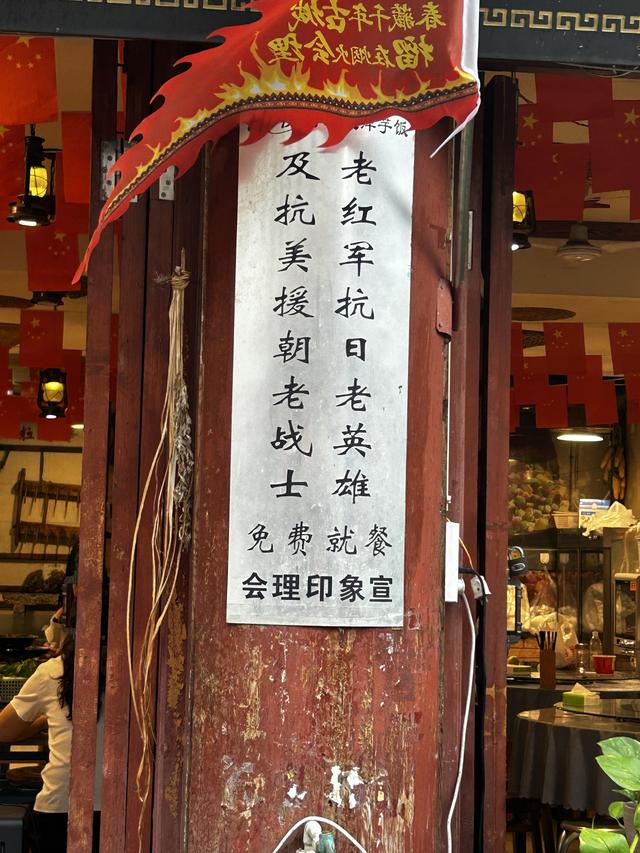 春藏千年古城
榴在烟火会理
芋饭
老红军抗日老英雄
及抗美援朝老战士
免费就餐
会理印象宣